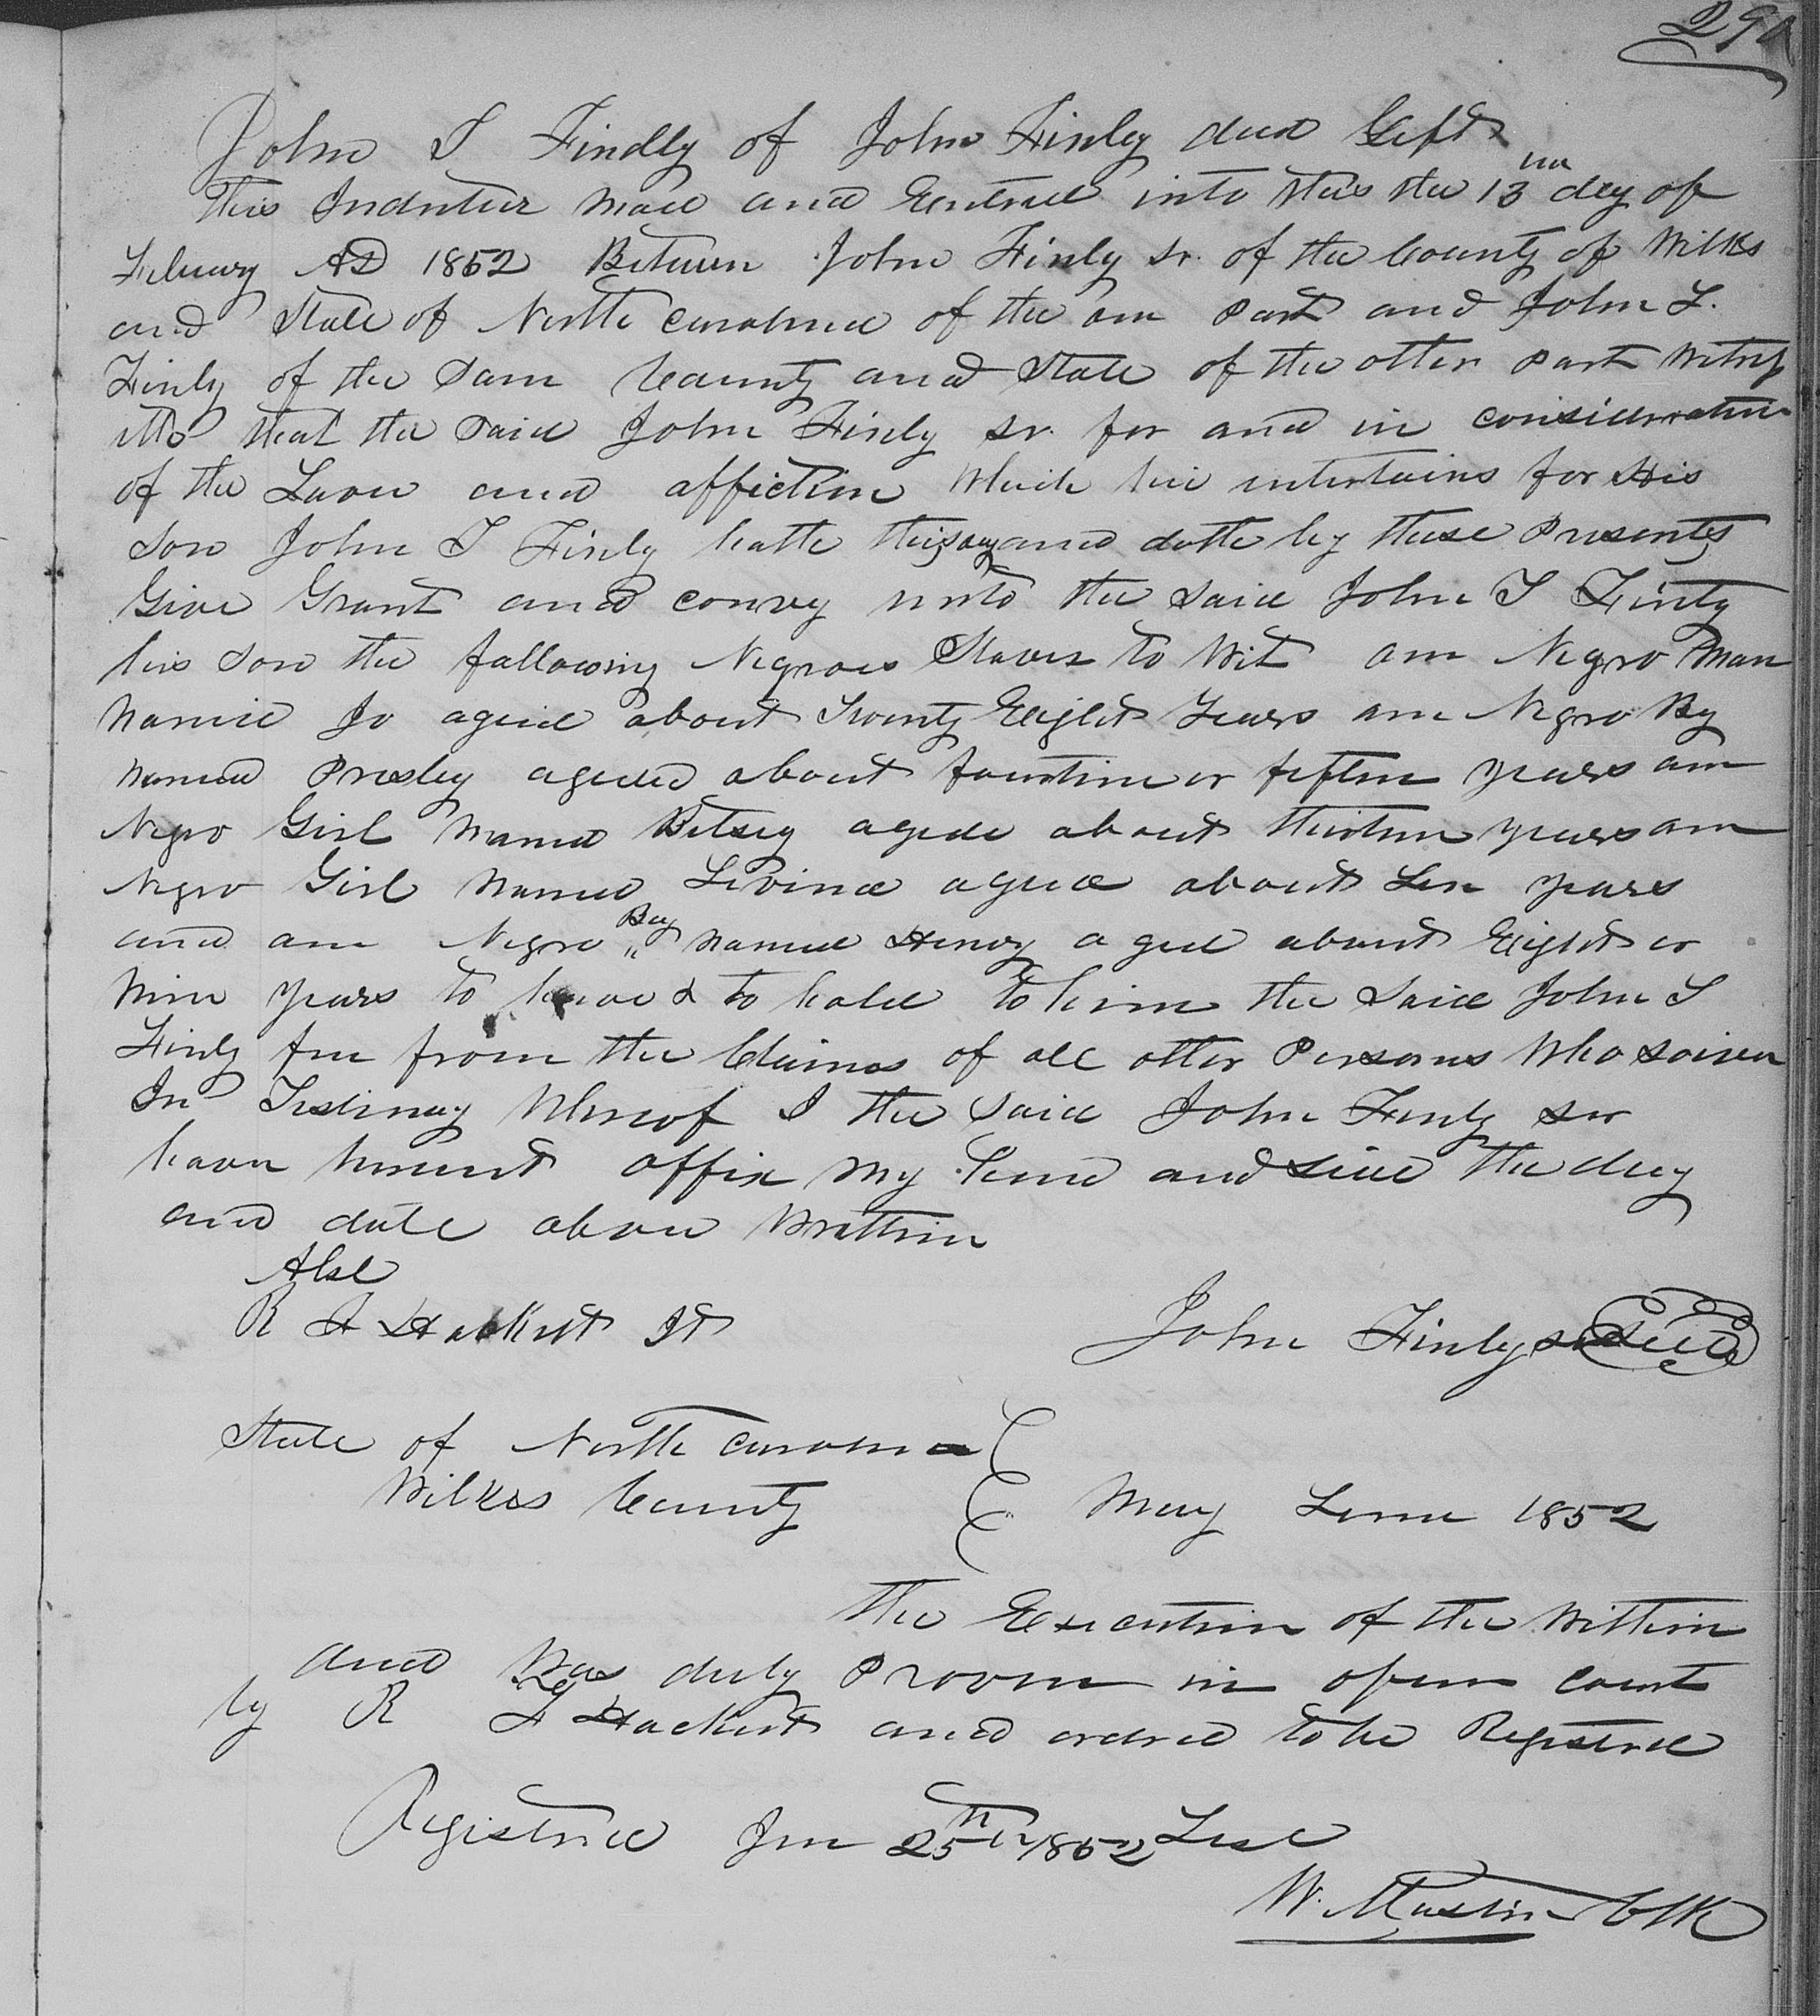 29
John T Findly of John Finly deed Gift
This Indenture made and Entered into this the 13 day of
February AD 1852 Between John Finly sr. of the County of Wilks
and State of North Carolina of the one Part and John T.
Finly of the Same County and State of the other Part Witness
eth that the said John Finly sr. for and in consideration
of the Love and affection Which he intertains for His
Son John T Finly hath this day and doth by these Presents
Give Grant and convey unto the said John T Finly
his Son the following Negroes Slaves to Wit one Negro Man
Named Jo aged about Twenty Eight Years one Negro Boy
Named Presley aged about fourteen or fifteen years one
Negro Girl Named Betsey aged about thirteen years one
Negro Girl Named Levina aged about Ten years
and one Negro Boy Named Henry aged about Eight or
Nine years to have & to hold to him the said John T
Finly free from the Claims of all other Persons Who soiver
In Testimony Whereof I the said John Finly snr
have hereunto affix my hand and seal the day
and date above Written
Atest
R F Hackett Jt
John Finly sr Seal
State of North Carolina
Wilkes County
May Term 1852
The Execution of the Within
deed Was duly Proven in open Court
by R F Hackett and ordered to be Registered
Registered June 25th 1852 Test
W. Mastin Clk